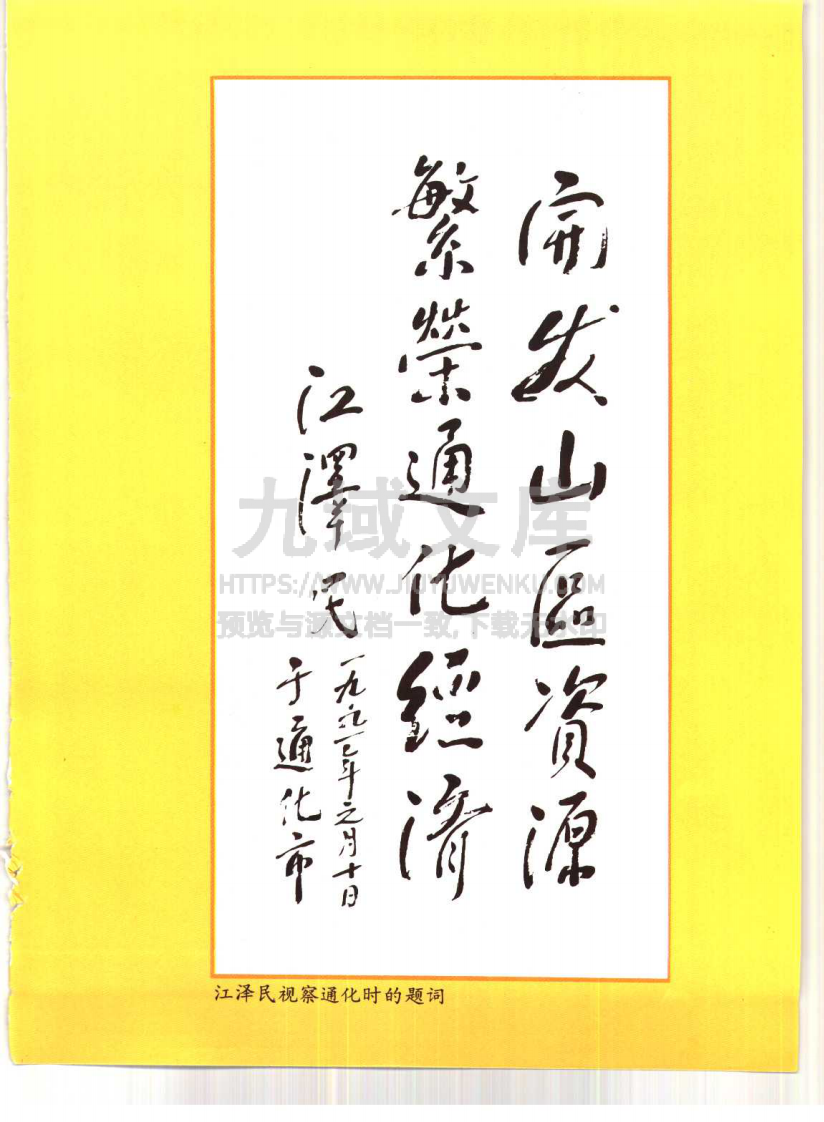 開发山區資源
繁榮通化經濟
江澤民
一九九一年元月十日
于通化市
九域文库
HTTPS://WWW.JIUYUWENKU.COM
预览与源文档一致,下载无水印
江泽民视察通化时的题词